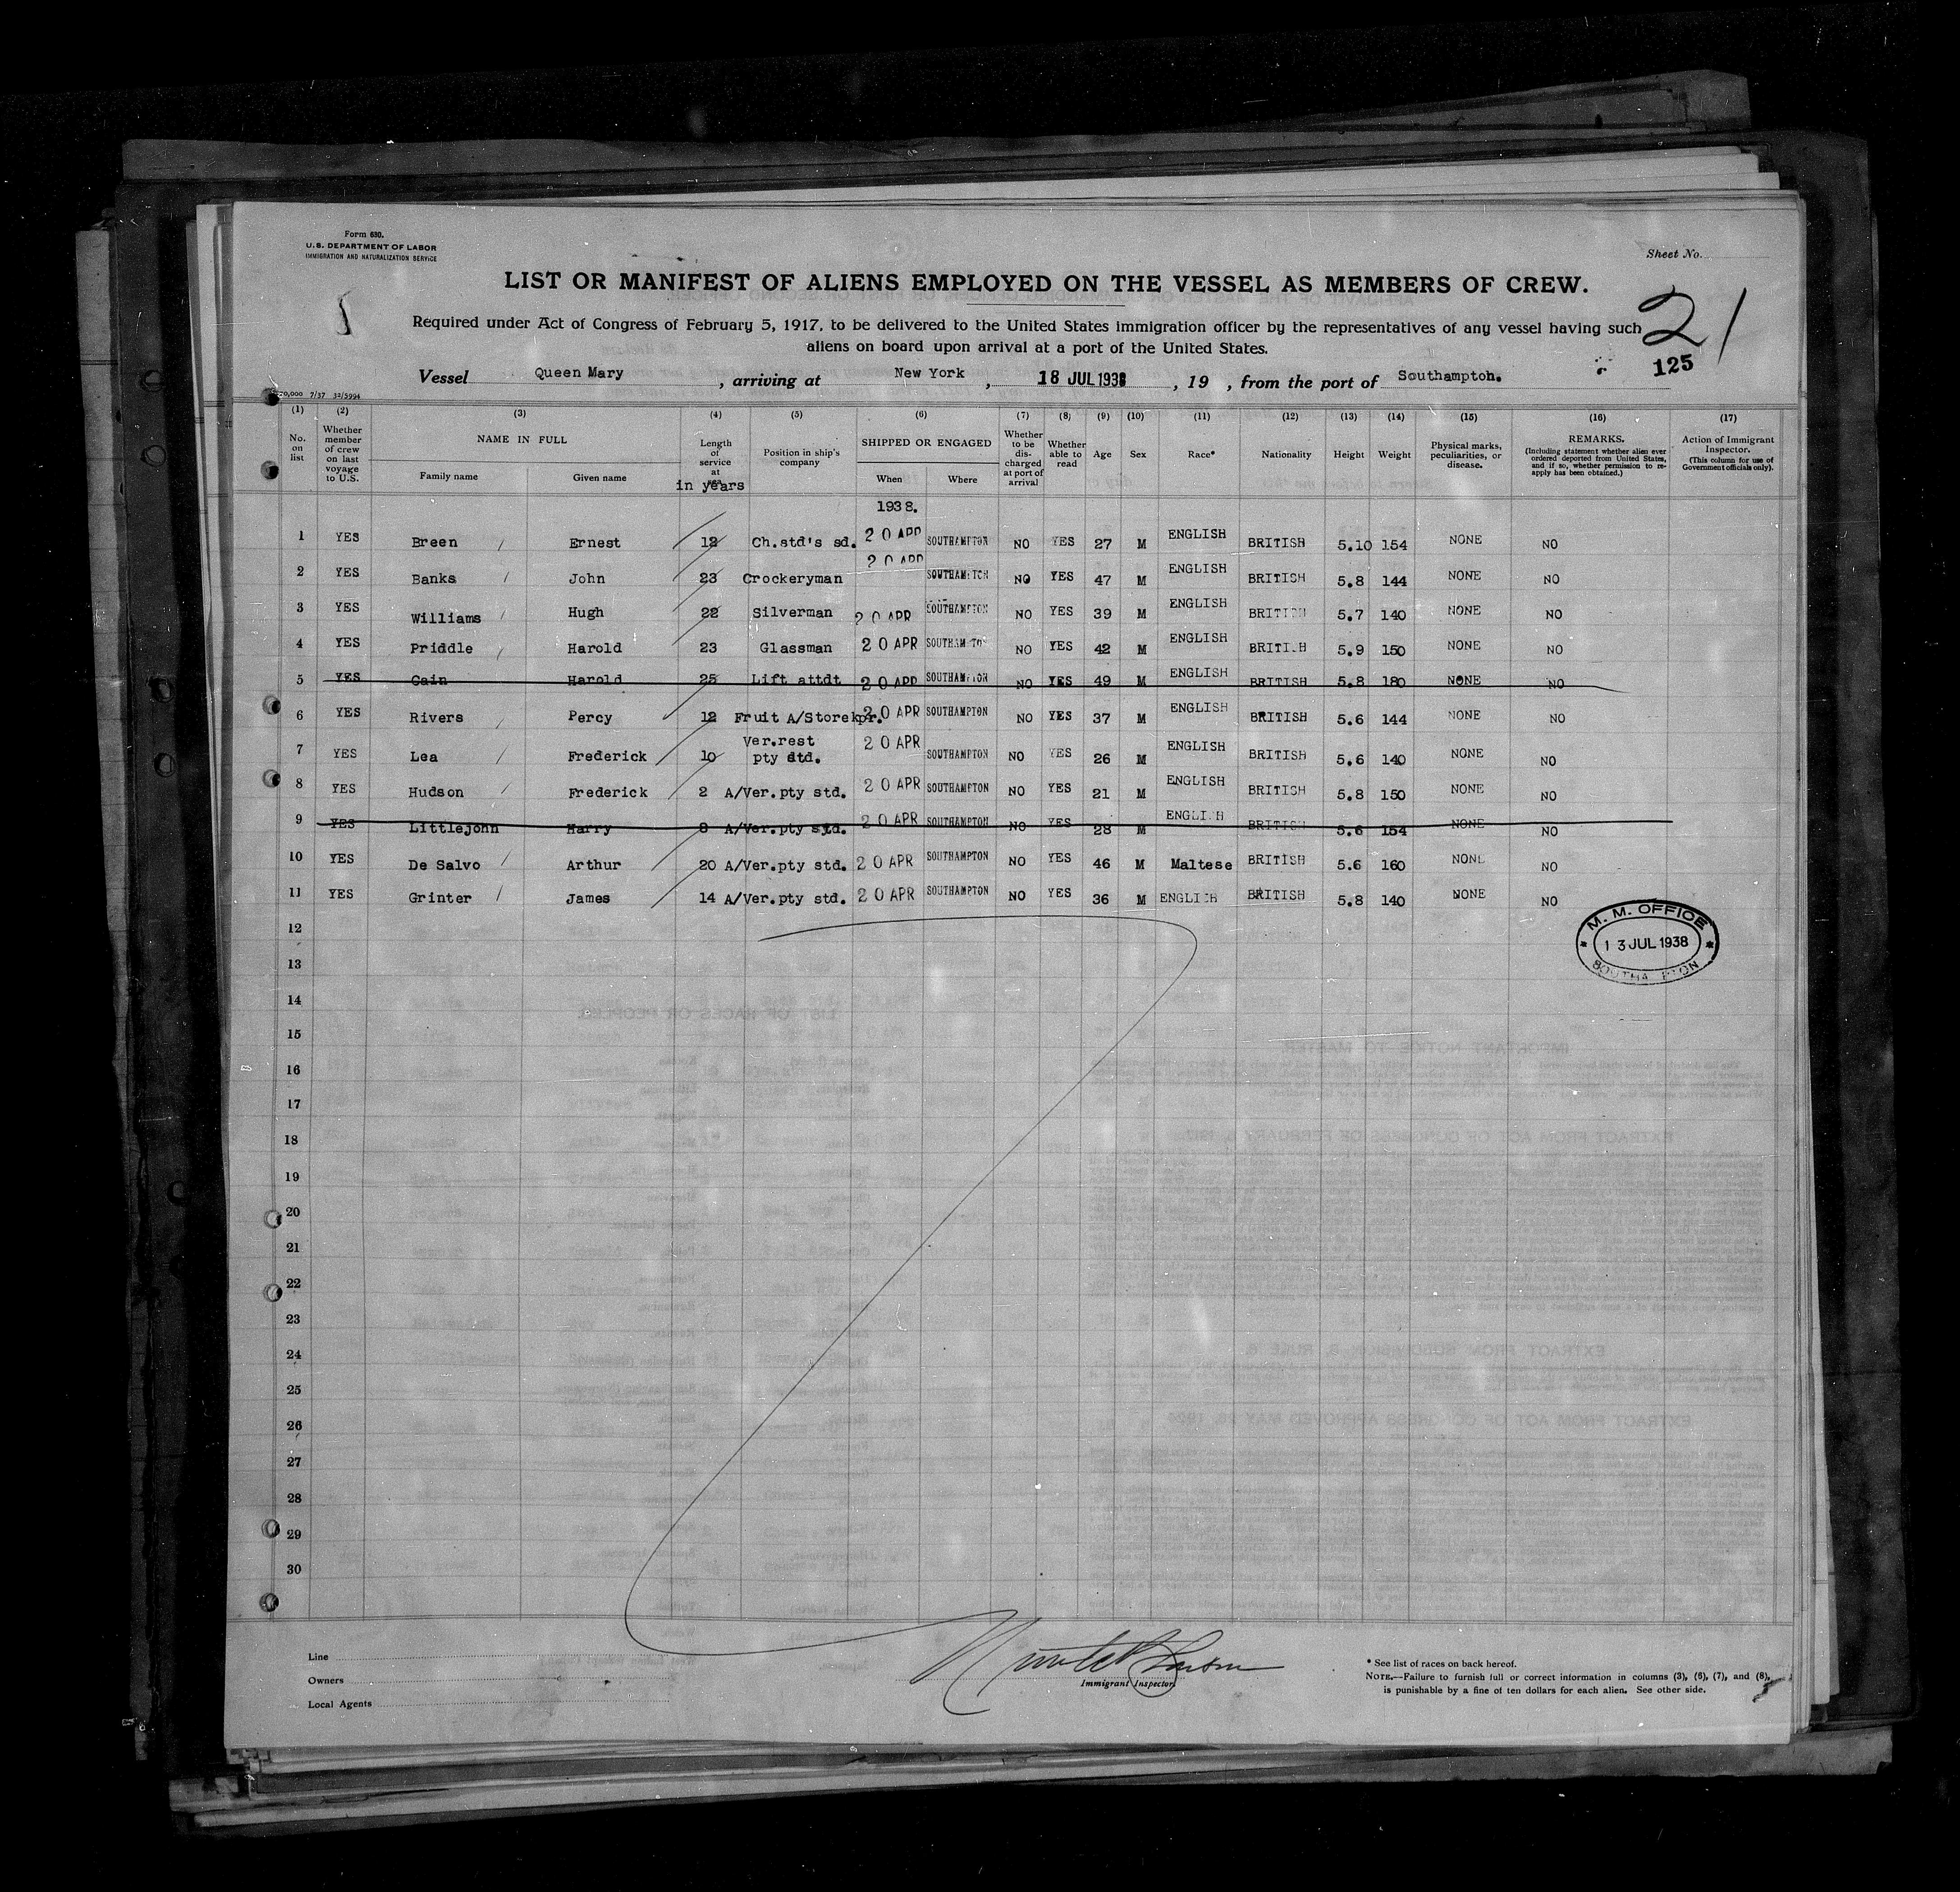 Form 630.
U.S. DEPARTMENT OF LABOR
IMMIGRATION AND NATURALIZATION SERVICE
Sheet No.
LIST OR MANIFEST OF ALIENS EMPLOYED ON THE VESSEL AS MEMBERS OF CREW.
Required under Act of Congress of February 5, 1917, to be delivered to the United States immigration officer by the representatives of any vessel having such
aliens on board upon arrival at a port of the United States.
21
125
Vessel Queen Mary, arriving at New York, 18 JUL 1938, 19 , from the port of Southampton.
70,000 7/37 32/5994
(1) (2) (3) (4) (5) (6) (7) (8) (9) (10) (11) (12) (13) (14) (15) (16) (17)
No. on list
Whether member of crew on last voyage to U.S.
NAME IN FULL
Family name Given name
Length of service at
in years
Position in ship's company
SHIPPED OR ENGAGED
When Where
Whether to be discharged at port of arrival
Whether able to read
Age Sex Race* Nationality Height Weight
Physical marks, peculiarities, or disease.
REMARKS.
(Including statement whether alien ever ordered deported from United States, and if so, whether permission to reapply has been obtained.)
Action of Immigrant Inspector.
(This column for use of Government officials only).
1938.
1 YES Breen Ernest 12 Ch.std's sd. 20 APR SOUTHAMPTON NO YES 27 M ENGLISH BRITISH 5.10 154 NONE NO
2 YES Banks John 23 Crockeryman 20 APR SOUTHAMPTON NO YES 47 M ENGLISH BRITISH 5.8 144 NONE NO
3 YES Williams Hugh 22 Silverman 20 APR SOUTHAMPTON NO YES 39 M ENGLISH BRITISH 5.7 140 NONE NO
4 YES Priddle Harold 23 Glassman 20 APR SOUTHAMPTON NO YES 42 M ENGLISH BRITISH 5.9 150 NONE NO
5 YES Cain Harold 25 Lift attdt 20 APR SOUTHAMPTON NO YES 49 M ENGLISH BRITISH 5.8 180 NONE NO
6 YES Rivers Percy 12 Fruit A/Storekpr. 20 APR SOUTHAMPTON NO YES 37 M ENGLISH BRITISH 5.6 144 NONE NO
7 YES Lea Frederick 10 Ver.rest pty std. 20 APR SOUTHAMPTON NO YES 26 M ENGLISH BRITISH 5.6 140 NONE NO
8 YES Hudson Frederick 2 A/Ver.pty std. 20 APR SOUTHAMPTON NO YES 21 M ENGLISH BRITISH 5.8 150 NONE NO
9 YES Littlejohn Harry A/Ver.pty std. 20 APR SOUTHAMPTON NO YES 28 M ENGLISH BRITISH 5.6 154 NONE NO
10 YES De Salvo Arthur 20 A/Ver.pty std. 20 APR SOUTHAMPTON NO YES 46 M Maltese BRITISH 5.6 160 NONE NO
11 YES Grinter James 14 A/Ver.pty std. 20 APR SOUTHAMPTON NO YES 36 M ENGLISH BRITISH 5.8 140 NONE NO
M. M. OFFICE
13 JUL 1938
SOUTHAMPTON
12
13
14
15
16
17
18
19
20
21
22
23
24
25
26
27
28
29
30
Line
Owners
Local Agents
Immigrant Inspector
* See list of races on back hereof.
NOTE.—Failure to furnish full or correct information in columns (3), (6), (7), and (8),
is punishable by a fine of ten dollars for each alien. See other side.